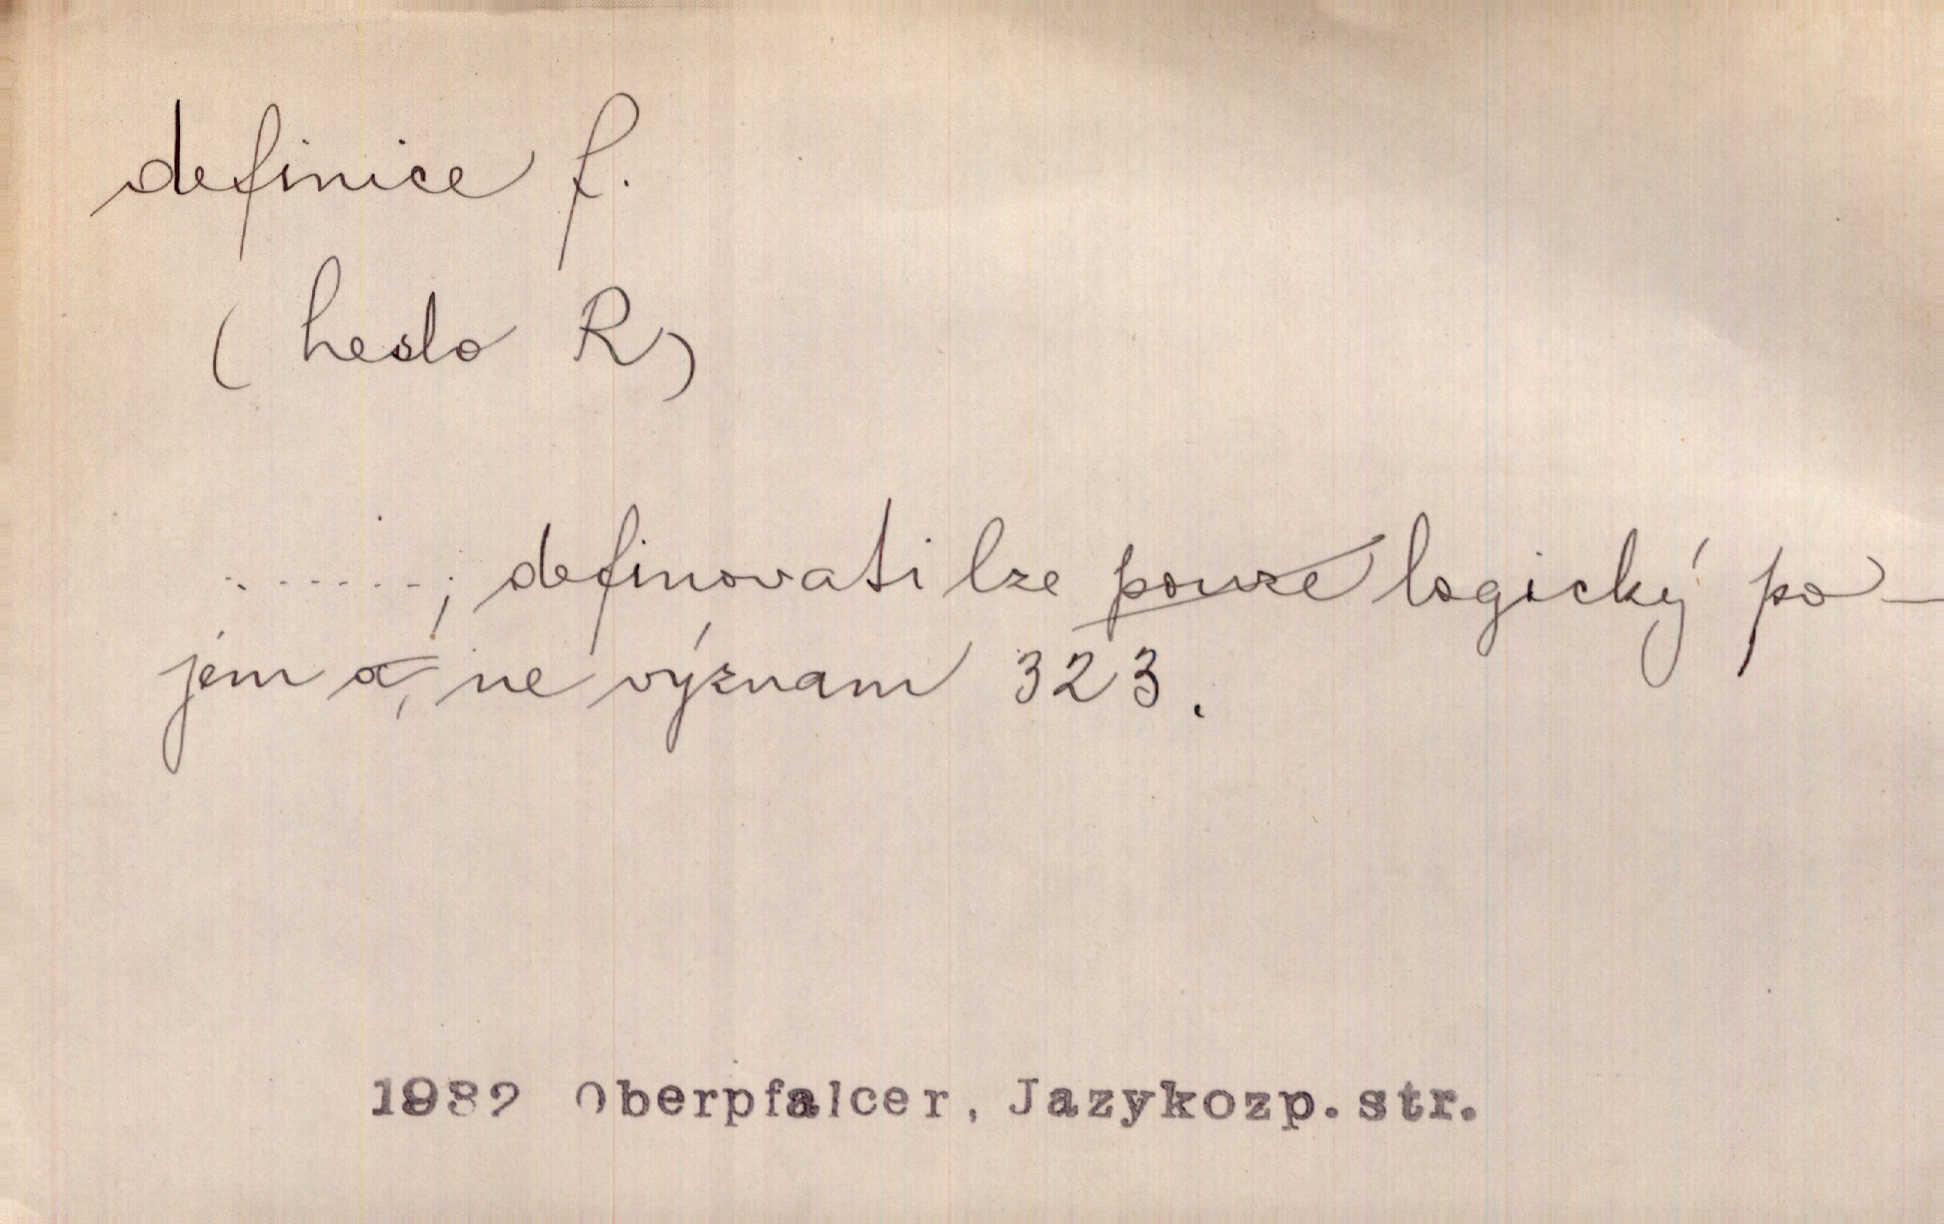 definice f.
( heslo R)
.......; definovati lze pouze logický po-
jem a, ne význam 323.
1932 Oberpfalcer, Jazykozp. str.